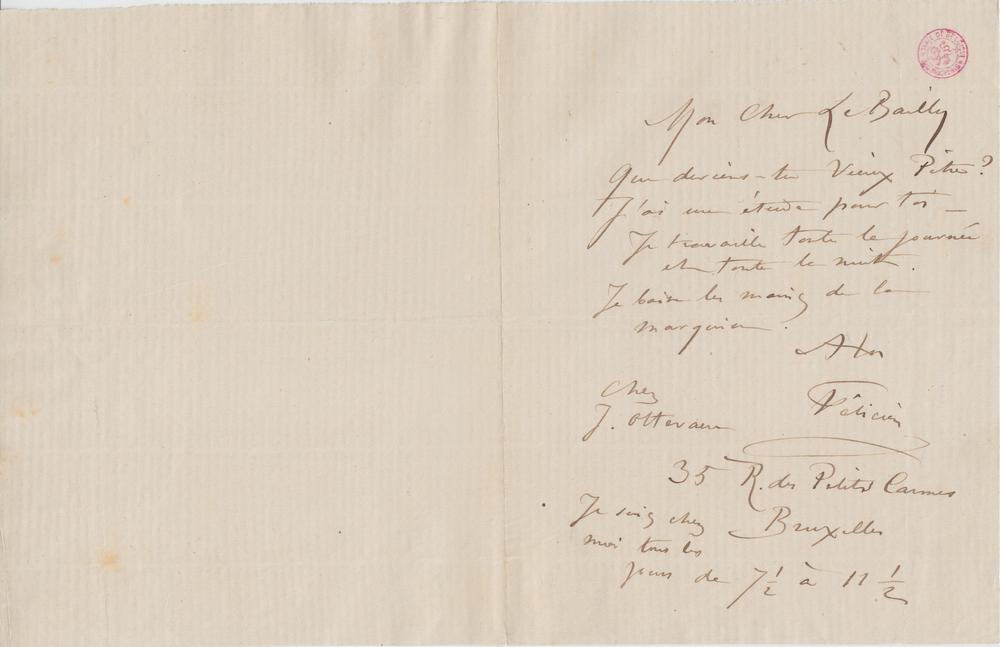 Mon Cher Le Bailly
Que deviens-tu Vieux Pitre?
J'ai une étude pour toi —
Je travaille toute la journée
et toute la nuit.
Je baise les mains de la
marquise.
A toi
Félicien
chez
J. Ottevaere
35 R. des Petits Carmes
Bruxelles
Je suis chez
moi tous les
jours de 7 1/2 à 11 1/2